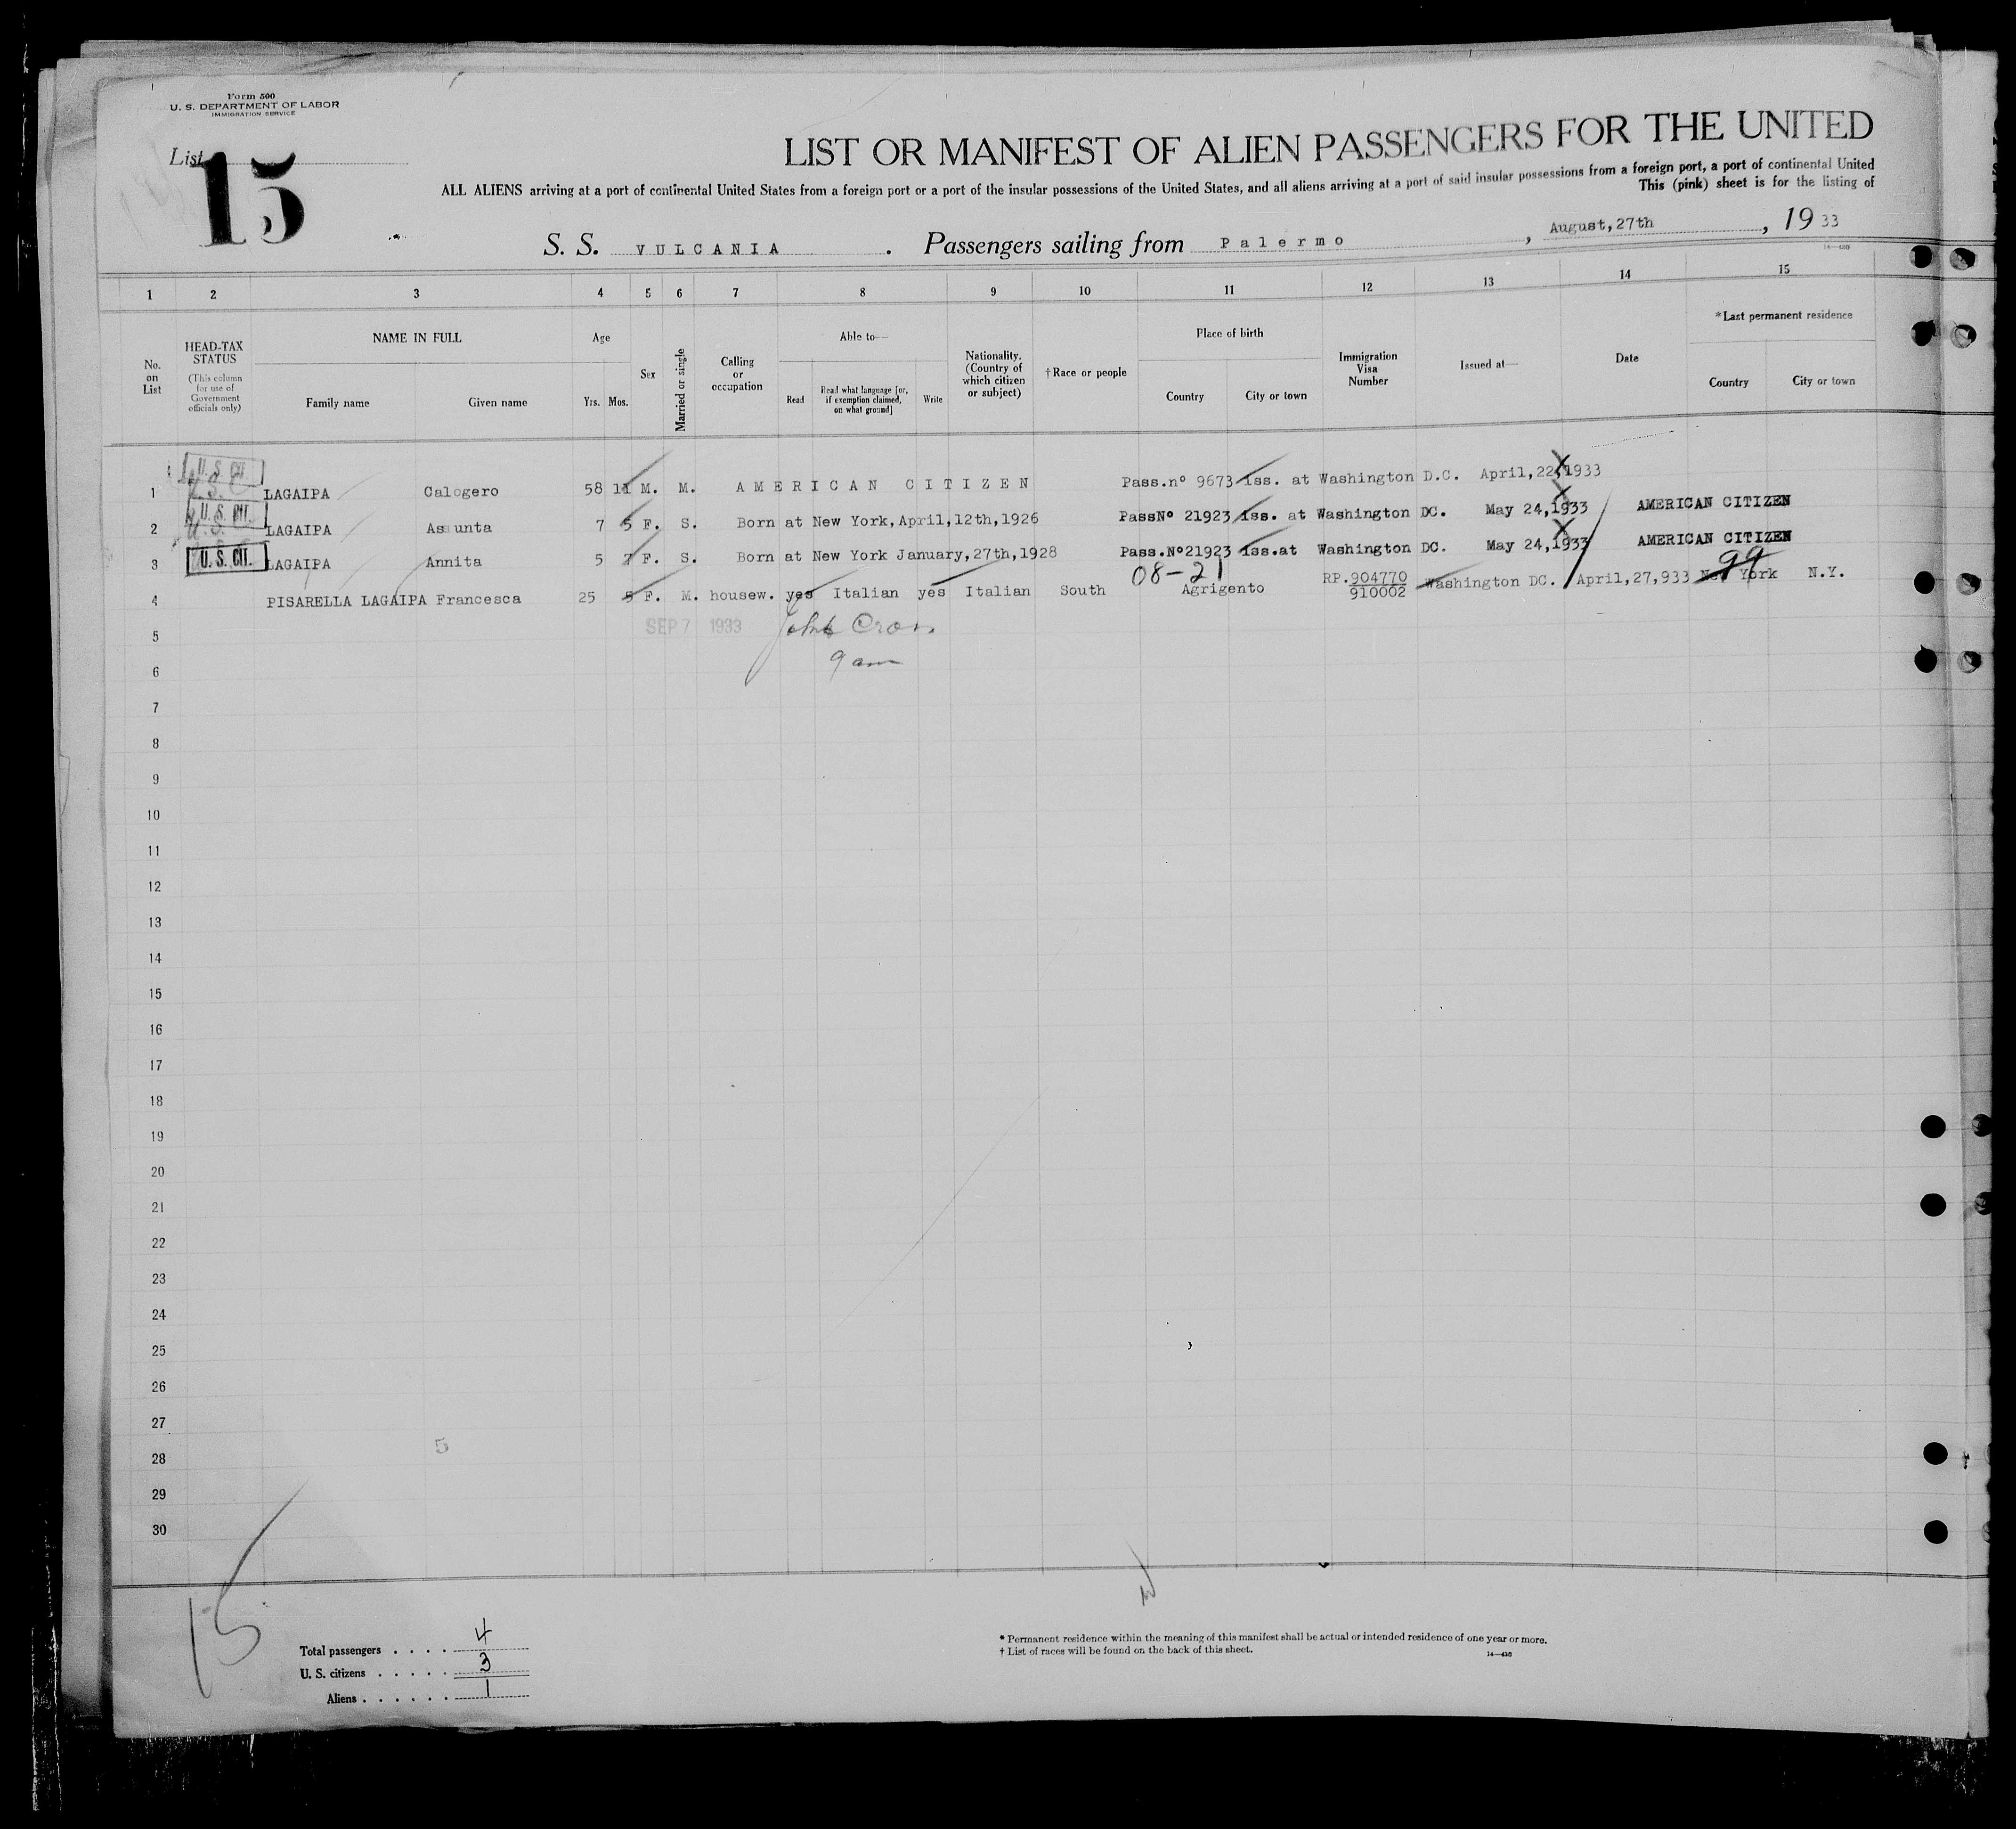 Form 500
U. S. DEPARTMENT OF LABOR
IMMIGRATION SERVICE
List 15
LIST OR MANIFEST OF ALIEN PASSENGERS FOR THE UNITED
ALL ALIENS arriving at a port of continental United States from a foreign port or a port of the insular possessions of the United States, and all aliens arriving at a port of said insular possessions from a foreign port, a port of continental United
This (pink) sheet is for the listing of
S. S. VULCANIA. Passengers sailing from Palermo, August, 27th, 1933
1 2 3 4 5 6 7 8 9 10 11 12 13 14 15
No. on List
HEAD-TAX STATUS (This column for use of Government officials only)
NAME IN FULL Family name Given name
Age Yrs. Mos.
Sex
Married or single
Calling or occupation
Able to— Read Read what language [or, if exemption claimed, on what ground] Write
Nationality. (Country of which citizen or subject)
†Race or people
Place of birth Country City or town
Immigration Visa Number
Issued at—
Date
*Last permanent residence Country City or town
1 U. S. CIT. LAGAIPA Calogero 58 11 M. M. AMERICAN CITIZEN Pass.nº 9673 iss. at Washington D.C. April,22,1933
2 U. S. CIT. LAGAIPA Assunta 7 5 F. S. Born at New York,April,12th,1926 PassNº 21923 iss. at Washington DC. May 24,1933 AMERICAN CITIZEN
3 U. S. CIT. LAGAIPA Annita 5 7 F. S. Born at New York January,27th,1928 Pass.Nº21923 iss.at Washington DC. May 24,1933 AMERICAN CITIZEN
08-21 99
4 PISARELLA LAGAIPA Francesca 25 5 F. M. housew. yes Italian yes Italian South Agrigento RP.904770 910002 Washington DC. April,27,933 New York N.Y.
5 SEP 7 1933
6 9 am
7
8
9
10
11
12
13
14
15
16
17
18
19
20
21
22
23
24
25
26
27
28
29
30
5
15
Total passengers . . . . 4
U. S. citizens . . . . . 3
Aliens . . . . . . 1
* Permanent residence within the meaning of this manifest shall be actual or intended residence of one year or more.
† List of races will be found on the back of this sheet.